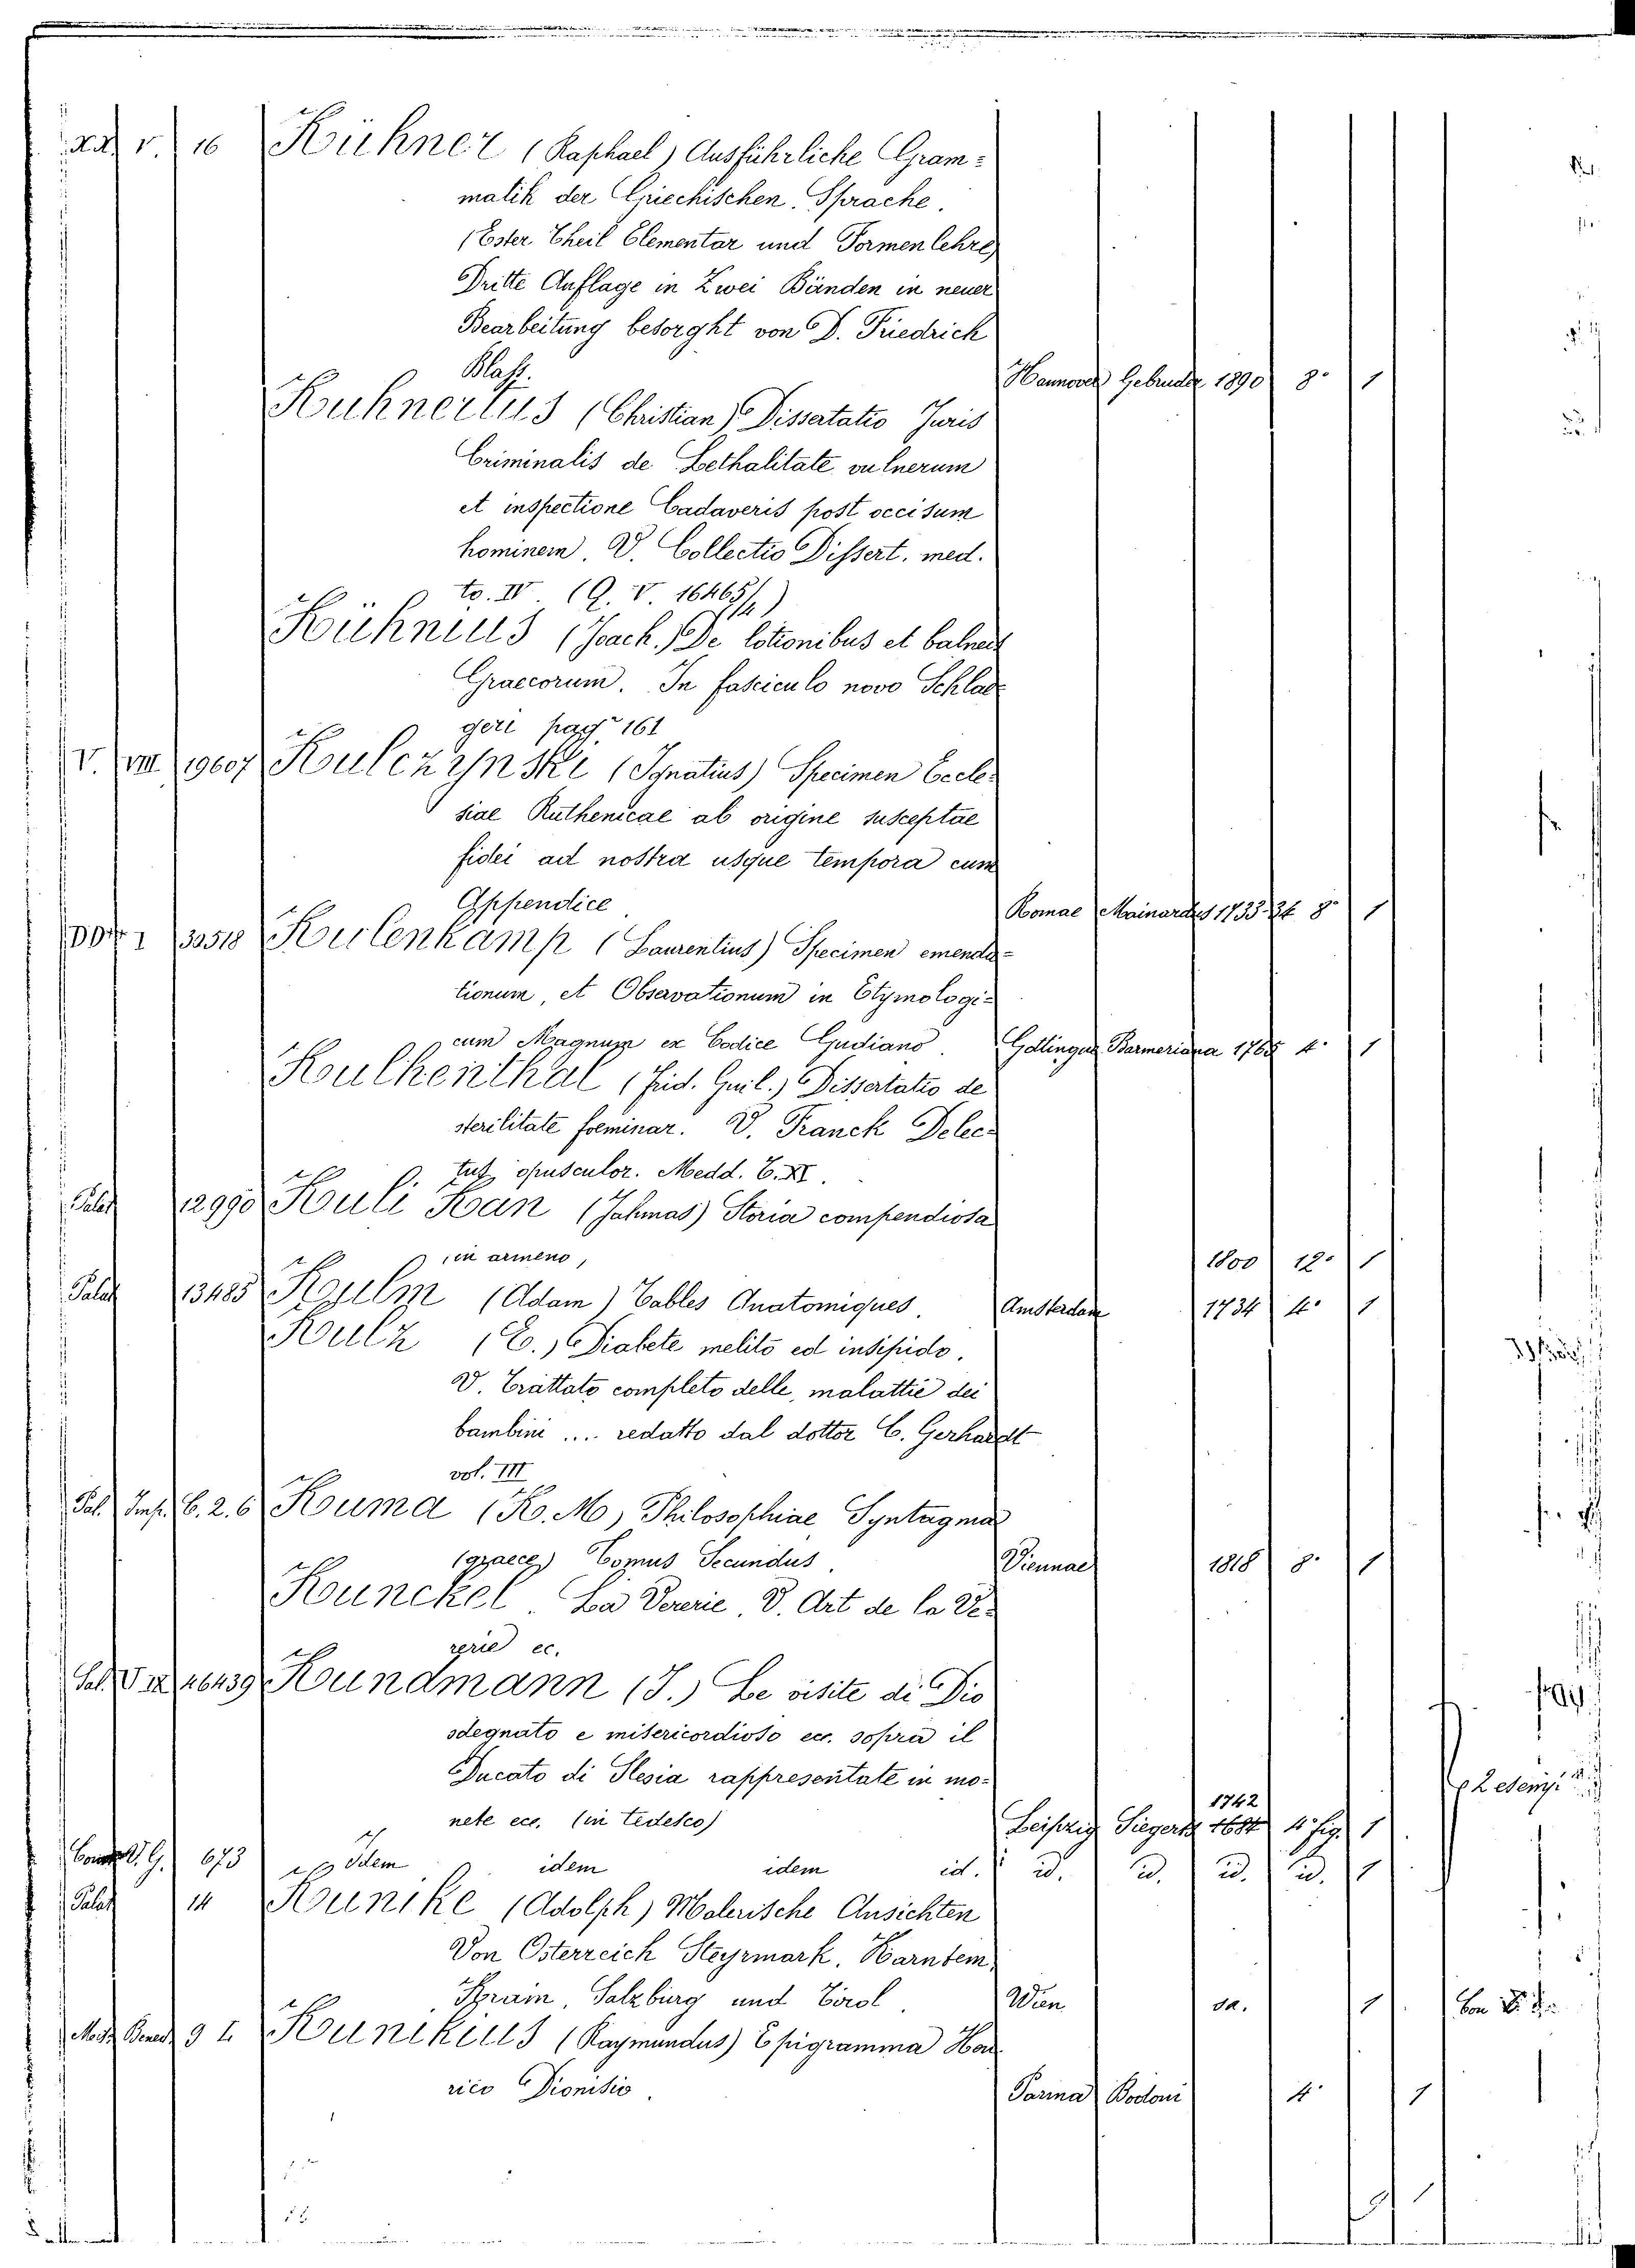 XXX V. 16 Kühner (Raphael) Ausführliche Gram=
matik der Griechischen Sprache.
(Ester Theil Elementar und Formenlehre)
Dritte Auflage in Zwei Bänden in neuer
Bearbeitung besorght von D. Friedrich
Blass. Hannover Gebruder 1890 8° 1
Kuhnerius (Christian) Dissertatio Juris
Criminalis de Lethalitate vulnerum
et inspectione Cadaveris post occisum
hominem. V. Collectio Dissert. med.
to. IV. (Q. V. 16465/4)
Kühnius (Joach.) De lotionibus et balneis
Graecorum. In fasciculo novo Schlae
geri pag. 161
V. VIII. 19607 Kulczynski (Ignatius) Specimen Eccle-
siae Ruthenicae ab origine susceptae
fidei ad nostra usque tempora cum
Appendice Romae Mainardus 1733-34 8° 1
1 33518 Kulenkamp (Laurentius) Specimen emenda=
tionum, et Observationum in Etymologi=
cum Magnum ex Codice Gudiano. Gottingae Barmeriana 1765 4° 1
Kulhenthal (Frid. Guil.) Dissertatio de
sterilitate foeminar. V. Franck Delec-
tus opusculor. Medd. T. XI.
Palat 12990 Kuli Kan (Jahmas) Storia compendiosa
in armeno, 1800 12° 1
Palat 13485 Kulm (Adam) Tables Anatomiques. Amsterdam 1734 4° 1
Kulz (E.) Diabete melito ed insipido.
V. Trattato completo delle malattie dei
bambini .... redatto dal dottor C. Gerhardt
vol. III
Pal. Imp. C. 2. 6 Kuma (K. M) Philosophiae Syntagma
(graece) Tomus Secundus. Viennae 1818 8° 1
Kunckel. La Vererie. V. Art de la Ve-
rerie ec.
Sal. V IX 26439 Kundmann (J.) Le visite di Dio
sdegnato e misericordioso ecc. sopra il
Ducato di Slesia rappresentate in mo-
nete ecc. (in tedesco) Leipzig Siegert 1742 4° fig. 1
V. G. 673 Idem idem idem id. id. id. id. id. 1
Palat 14 Kunike (Adolph) Malerische Ansichten
Von Osterreich Steyrmark. Karntem,
Krain, Salzburg und Tirol. Wien sa. 1
9 Kunikius (Raymundus) Epigramma Hon
rico Dionisio. Parma Bodoni 4° 1